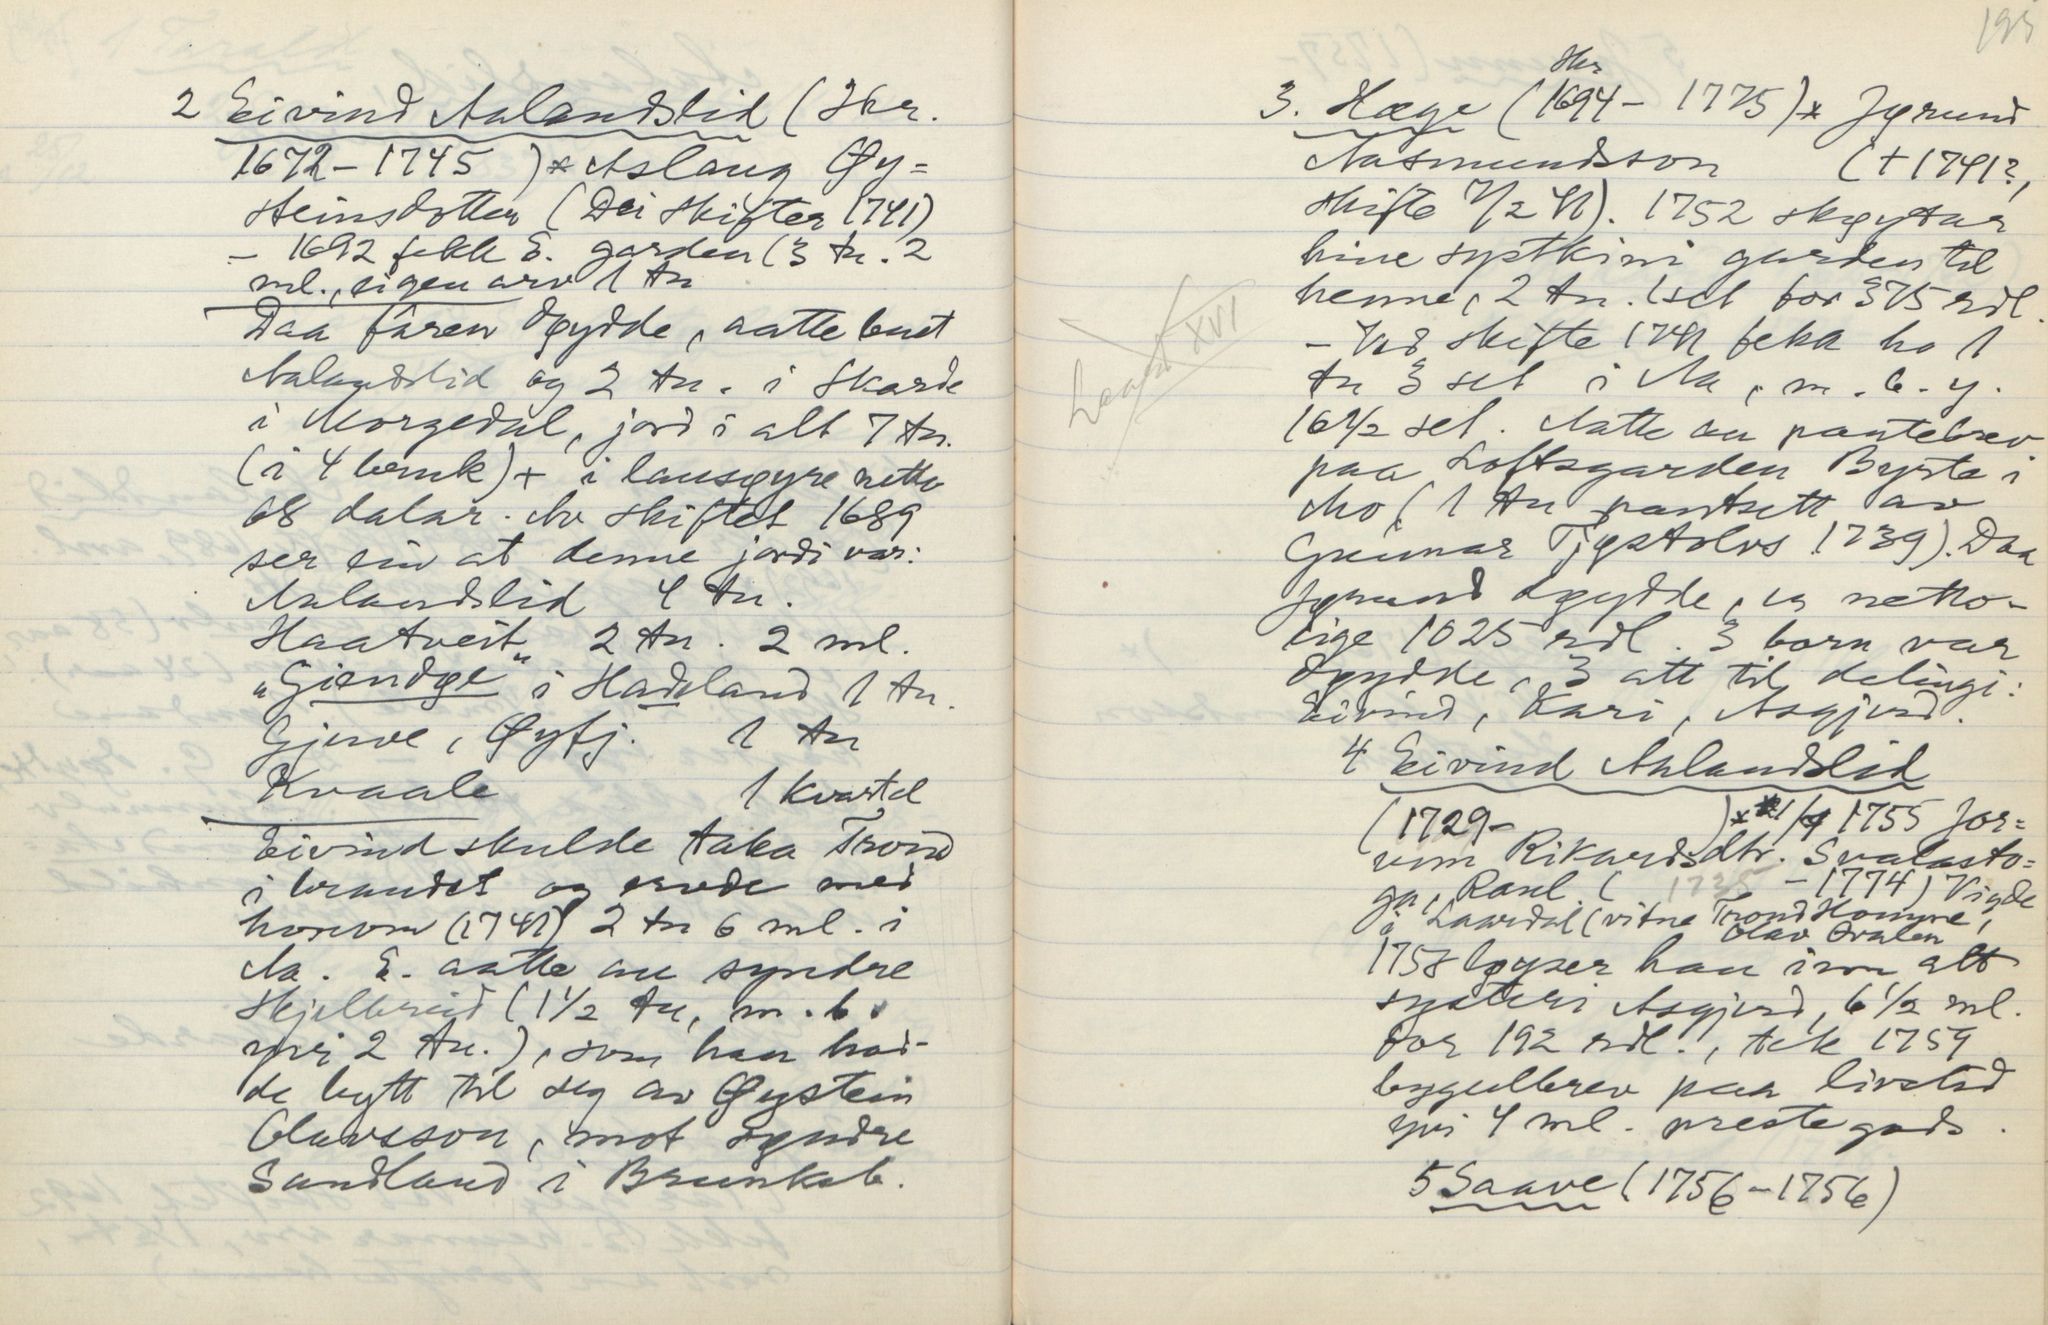 2 Eivind Aalandslid (Skr.
1672 - 1745 ) * Aslaug Øy=
steinsdotter (Dei skifter 1741)
- 1692 fekk E. garden (3 tn. 2
ml., eigen arv 1 tn
Daa faren døydde, aatte buet
Aalandslid og 2 tn. i Skarde
i Morgedal, jord i alt 7 tn.
(i 4 bruk) + i lausøyre netto
68 dalar. Av skiftet 1689
ser ein at denne jordi var:
Aalandslid 4 tn.
Haatveit 2 tn. 2 ml.
"Giendøe" i Hadeland 1 tn.
Gjerve, Øyfj. 1 tn
Kvaale 1 kvartel
Eivind skulde taka Trond
i braudet og ervde med
honom (1741) 2 tn 6 ml. i
Aa. E. aatte au syndre
Skjelbreid (1 1/2 tn, m. b.
yvi 2 tn.), som han had-
de bytt til seg av Øystein
Olavsson, mot syndre
Sandland i Brunkeb.
195
3. Hæge (Skr 1694 - 1775) * Jørund
Aasmundsson († 1741?,
skifte 7/2 41). 1752 skøytar
hine syskini garden til
henne, 2 tn. 1 set for 375 rdl.
- Ved skifte 1741 fekk ho 1
tn 3 set i Aa, m. b. y.
16 1/2 set. Aatte au pantebrev
paa Loftsgarden Byrte i
Mo (1 tn pantsett av
Gunnar Tjøstolvs 1739). Daa
Jørund døydde, va netto-
eige 1025 rdl. 3 born var
døydde, 3 att til delingi:
Eivind, Kari, Asgjerd.
Laupt XVI
4 Eivind Aalandslid
(1729 - ) * 1/9 1755 Jor=
unn Rikardsdtr. Svalasto=
ga, Raul. ( 1735 - 1774) Vigde
i Laardal (vitne Trond Homme,
Olav Kvalen
1758 løyser han inn att
systeri Asgjerd, 6 1/2 ml.
for 192 rdl., tek 1759
bygselbrev paa livstid
yvi 4 ml. prestegods.
5 Saave (1756 - 1756)